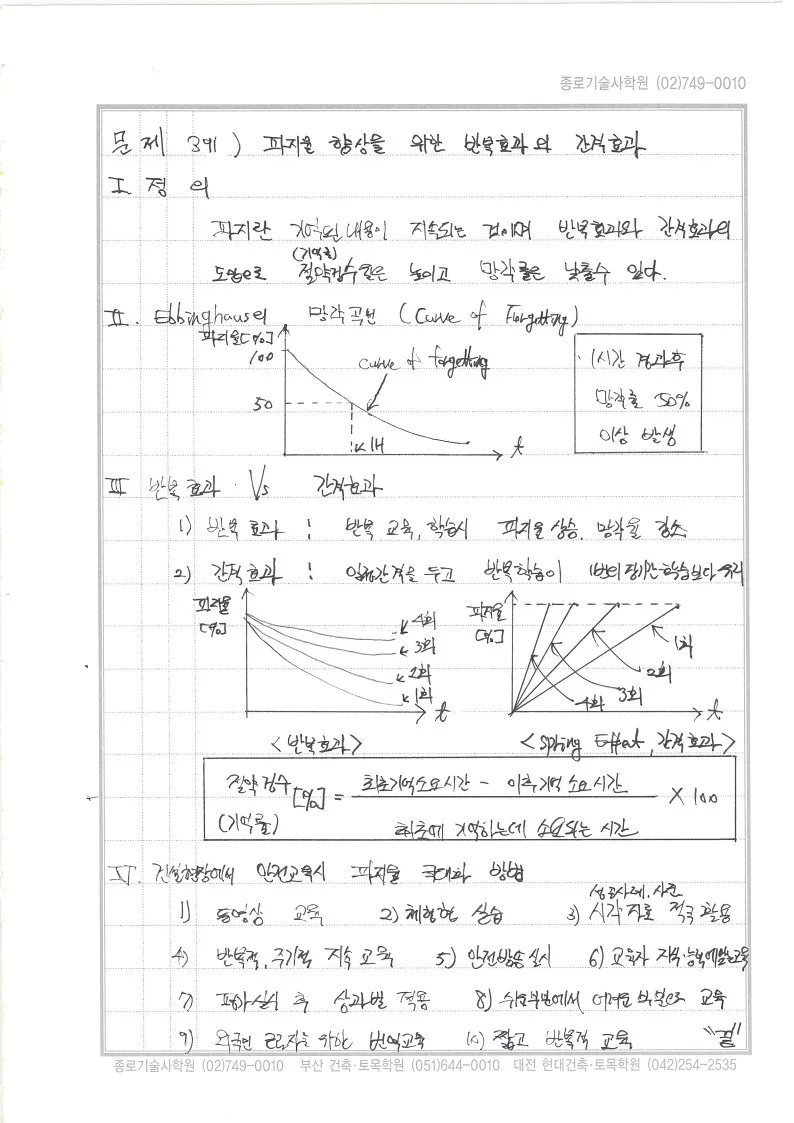 종로기술사학원 (02)749-0010
문제 3번) 파지율 향상을 위한 반복효과와 간격효과
I. 정의
파지란 기억된 내용이 지속되는 것이며 반복효과와 간격효과의
(기억률)
도입으로 절약점수율은 높이고 망각률은 낮출수 있다.
II. Ebbinghaus의 망각곡선 (Curve of Forgetting)
파지율[%]
100
curve of forgetting
50
1H
t
1시간 경과후
망각률 50%
이상 발생
III 반복효과 Vs 간격효과
1) 반복효과 : 반복 교육, 학습시 파지율 상승, 망각율 감소
2) 간격효과 : 일정간격을 두고 반복학습이 1번의 장기간학습보다 유리
파지율
[%]
4회
3회
2회
1회
t
<반복효과>
파지율
[%]
1회
2회
3회
4회
t
<Spring Effect, 간격효과>
절약점수
(기억률)
[%] = 최초기억소요시간 - 이후기억 소요시간 × 100
최초에 기억하는데 소요되는 시간
IV. 건설현장에서 안전교육시 파지율 극대화 방법
성공사례, 사진
1) 동영상 교육 2) 체험형 실습 3) 시각자료 적극 활용
4) 반복적, 주기적 지속 교육 5) 안전방송 실시 6) 교육자 지식·능력에맞는교육
7) 평가실시 후 상과벌 적용 8) 쉬운부분에서 어려운 부분으로 교육
9) 외국인 근로자를 위한 번역교육 10) 짧고 반복적 교육 "끝"
종로기술사학원 (02)749-0010 부산 건축·토목학원 (051)644-0010 대전 현대건축·토목학원 (042)254-2535